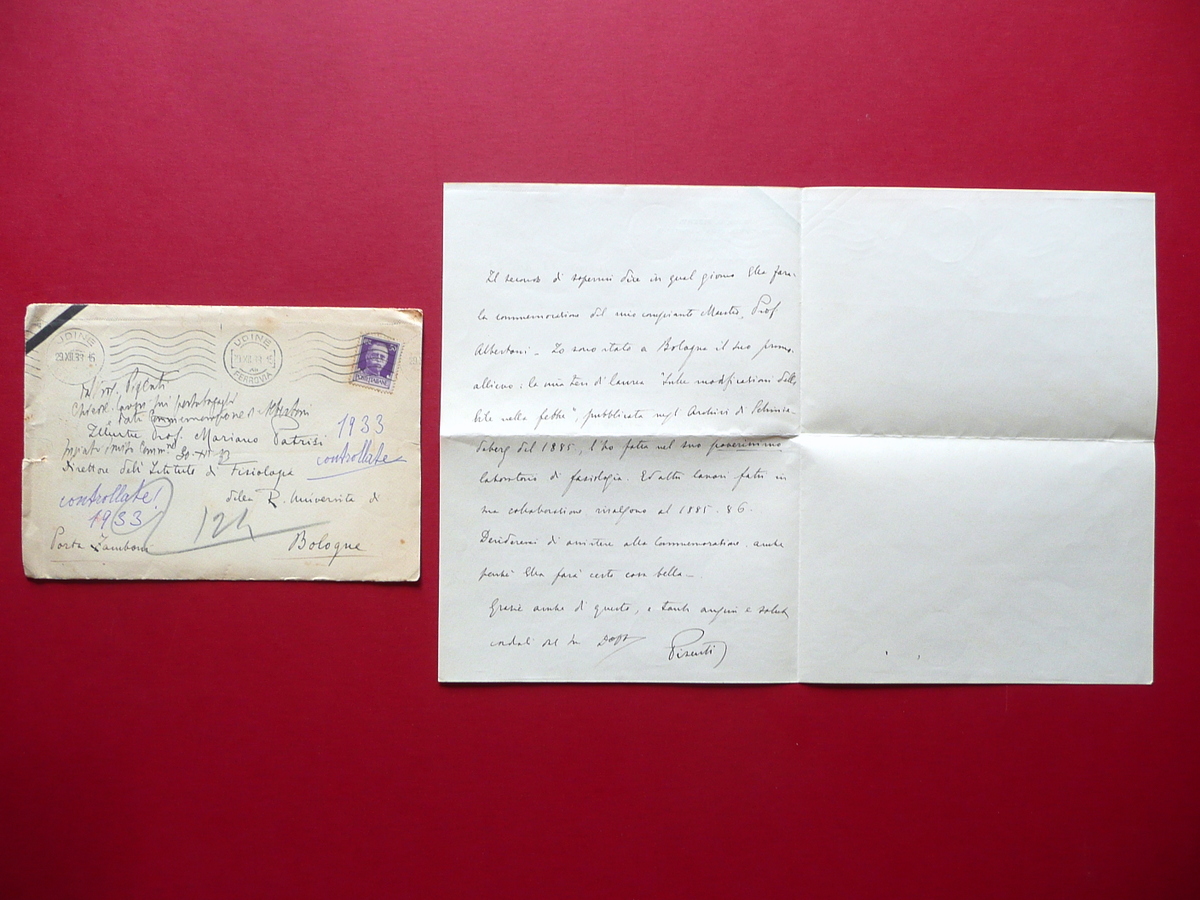 UDINE
29.XII.33 15
UDINE
FERROVIA
POSTE ITALIANE
50
Prof. Pisenti
Chiede
data Commemorazione Albertoni
Illustre Prof. Mariano Patrizi
1933
controllate
Inviato invito Comm. 30-XII-33
Direttore dell'Istituto di Fisiologia
controllate!
1933
della R. Università di
12h
Porta Zamboni
Bologna
Il secondo di sapermi dire in qual giorno Ella farà
la commemorazione del mio compianto Maestro, Prof
Albertoni – Io sono stato a Bologna il suo primo
allievo: la mia tesi di laurea "Sulle modificazioni della
bile nella febbre" pubblicata negli Archivi di Schmie-
deberg del 1885, l'ho fatta nel suo poverissimo
laboratorio di fisiologia. Ed altri lavori fatti in
sua collaborazione risalgono al 1885-86.
Desidererei di assistere alla Commemorazione anche
perché Ella farà certo cosa bella –
Grazie anche di questo, e tanti auguri e saluti
cordiali del suo Dev
Pisenti